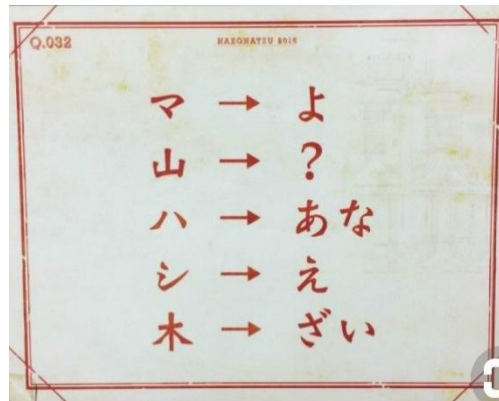 Q.032
NAZONATSU 2015
マ → よ
山 → ?
ハ → あな
シ → え
木 → ざい